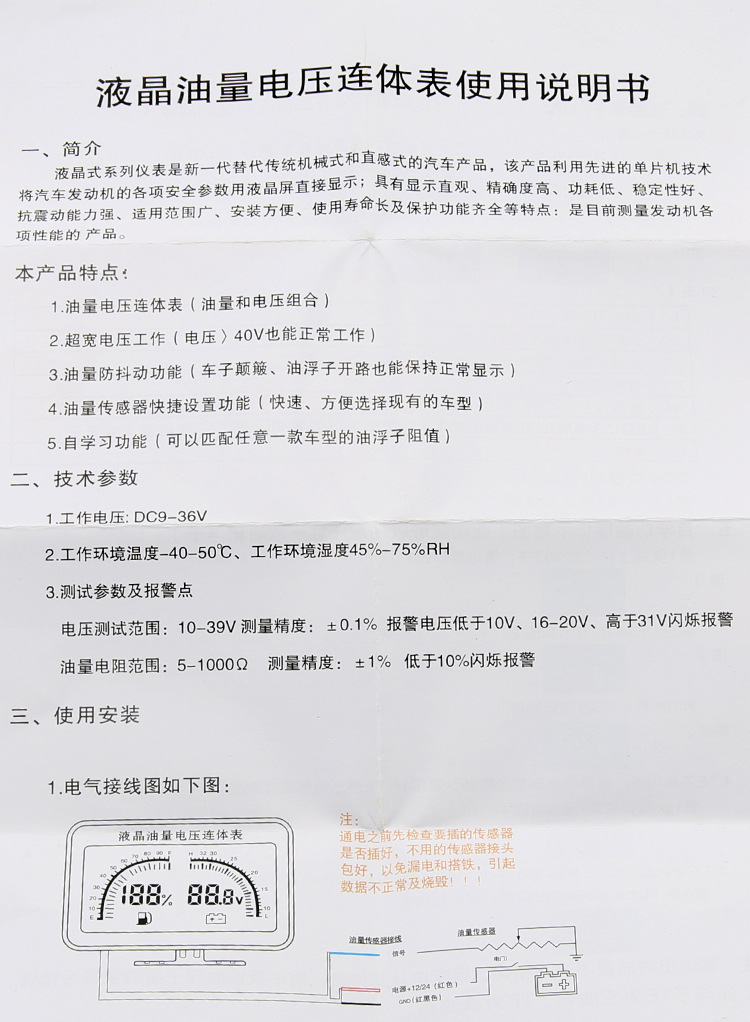 液晶油量电压连体表使用说明书
一、简介
液晶式系列仪表是新一代替代传统机械式和直感式的汽车产品，该产品利用先进的单片机技术
将汽车发动机的各项安全参数用液晶屏直接显示；具有显示直观、精确度高、功耗低、稳定性好、
抗震动能力强、适用范围广、安装方便、使用寿命长及保护功能齐全等特点：是目前测量发动机各
项性能的 产品。
本产品特点：
1.油量电压连体表（油量和电压组合）
2.超宽电压工作（电压〉40V也能正常工作）
3.油量防抖动功能（车子颠簸、油浮子开路也能保持正常显示）
4.油量传感器快捷设置功能（快速、方便选择现有的车型）
5.自学习功能（可以匹配任意一款车型的油浮子阻值）
二、技术参数
1.工作电压: DC9-36V
2.工作环境温度-40-50℃、工作环境湿度45%-75%RH
3.测试参数及报警点
电压测试范围：10-39V 测量精度：±0.1% 报警电压低于10V、16-20V、高于31V闪烁报警
油量电阻范围：5-1000Ω 测量精度：±1% 低于10%闪烁报警
三、使用安装
1.电气接线图如下图：
注：
通电之前先检查要插的传感器
是否插好，不用的传感器接头
包好，以免漏电和搭铁，引起
数据不正常及烧毁！！！
液晶油量电压连体表
E 10 20 30 40 50 60 70 80 90 F
H 32 30 25 20 15 10 L
188% 88.8v
油量传感器接线
油量传感器
信号
电门
电源+12/24（红色）
GND（红黑色）